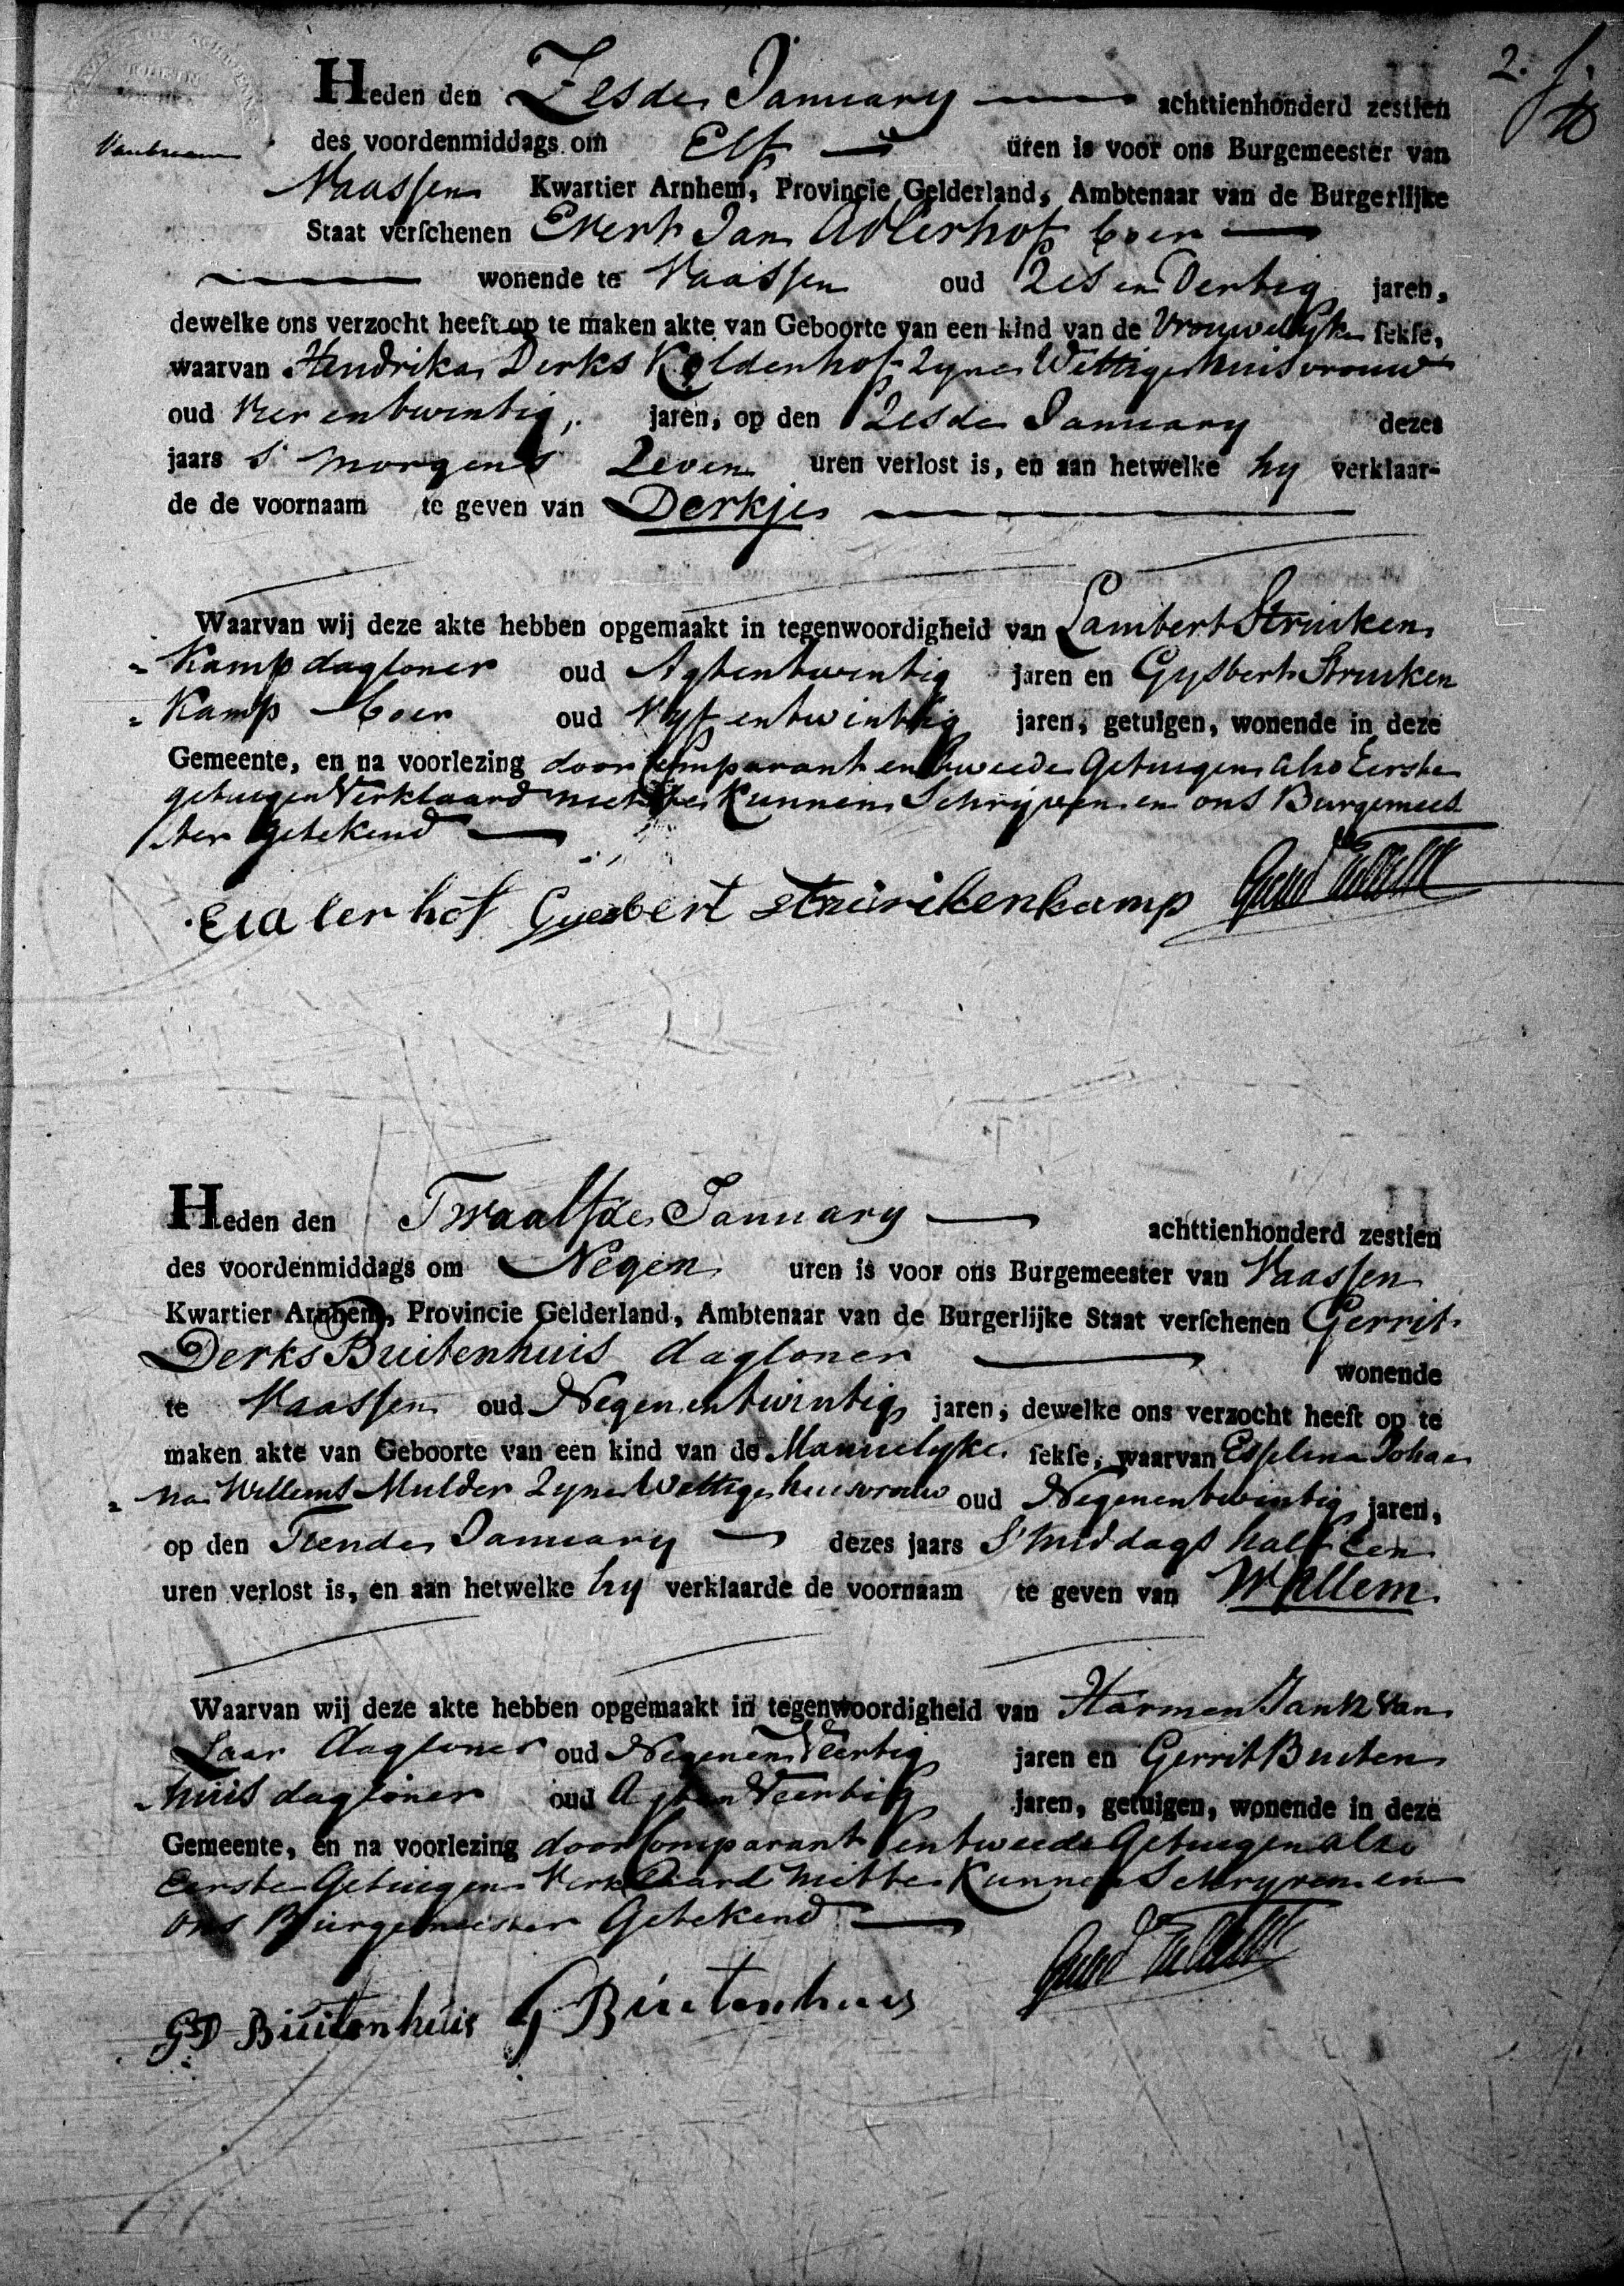 2.
Heden den Zesde January achttienhonderd zestien
des voordenmiddags om Elf uren is voor ons Burgemeester van
Vaassen Kwartier Arnhem, Provincie Gelderland, Ambtenaar van de Burgerlijke
Staat verschenen Evert Jan Adlerhof boer
wonende te Vaassen oud Zes en Dertig jaren,
dewelke ons verzocht heeft op te maken akte van Geboorte van een kind van de Vrouwelyke sekse,
waarvan Hendrika Derks Koldenhof Zyne Wettige huisvrouw
oud Vier en twintig, jaren, op den Zesde January dezes
jaars s morgens Zeven uren verlost is, en aan hetwelke hy verklaar-
de de voornaam te geven van Derkje
Waarvan wij deze akte hebben opgemaakt in tegenwoordigheid van Lambert Struiken
= Kamp dagloner oud Agtentwintig jaren en Gysbert Struiken
= Kamp boer oud Vyf entwintig jaren, getuigen, wonende in deze
Gemeente, en na voorlezing door Comparant en tweede Getuigen also Eerste
getuigen Verklaard niet te Kunnen Schryven en ons Burgemees
ter getekend
EIAlerhof Gysbert struikenkamp
Heden den Twaalfde January achttienhonderd zestien
des voordenmiddags om Negen uren is voor ons Burgemeester van Vaassen
Kwartier Arnhem, Provincie Gelderland, Ambtenaar van de Burgerlijke Staat verschenen Gerrit
Derks Buitenhuis dagloner wonende
te Vaassen oud Negen en twintig jaren, dewelke ons verzocht heeft op te
maken akte van Geboorte van een kind van de Mannelyke sekse, waarvan Esselina Johan
= na Willems Mulder Zyne Wettige huisvrouw oud Negenentwintig jaren,
op den Tiende January dezes jaars S'middags half Een
uren verlost is, en aan hetwelke hy verklaarde de voornaam te geven van Willem
Waarvan wij deze akte hebben opgemaakt in tegenwoordigheid van Harmen Jan van
Laar dagloner oud Negenen Veertig jaren en Gerrit Buiten
= huis dagloner oud Agt en Veertig jaren, getuigen, wonende in deze
Gemeente, en na voorlezing door Comparant en tweede Getuigen alzo
Eerste Getuigen Verklaard niet te Kunnen Schryven en
ons Burgemeester Getekend
GD Buitenhuis G Buitenhuis